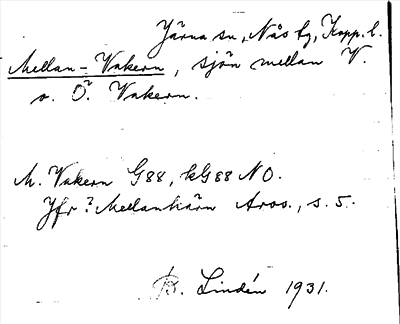 Järna sn, Nås fg, Kopp. l.
Mellan-Vakern, sjön mellan V.
o. Ö. Vakern.
M. Vakern G88, kG88 NO.
Jfr ? Mellankärn Aros., s. 5.
B. Lindén 1931.